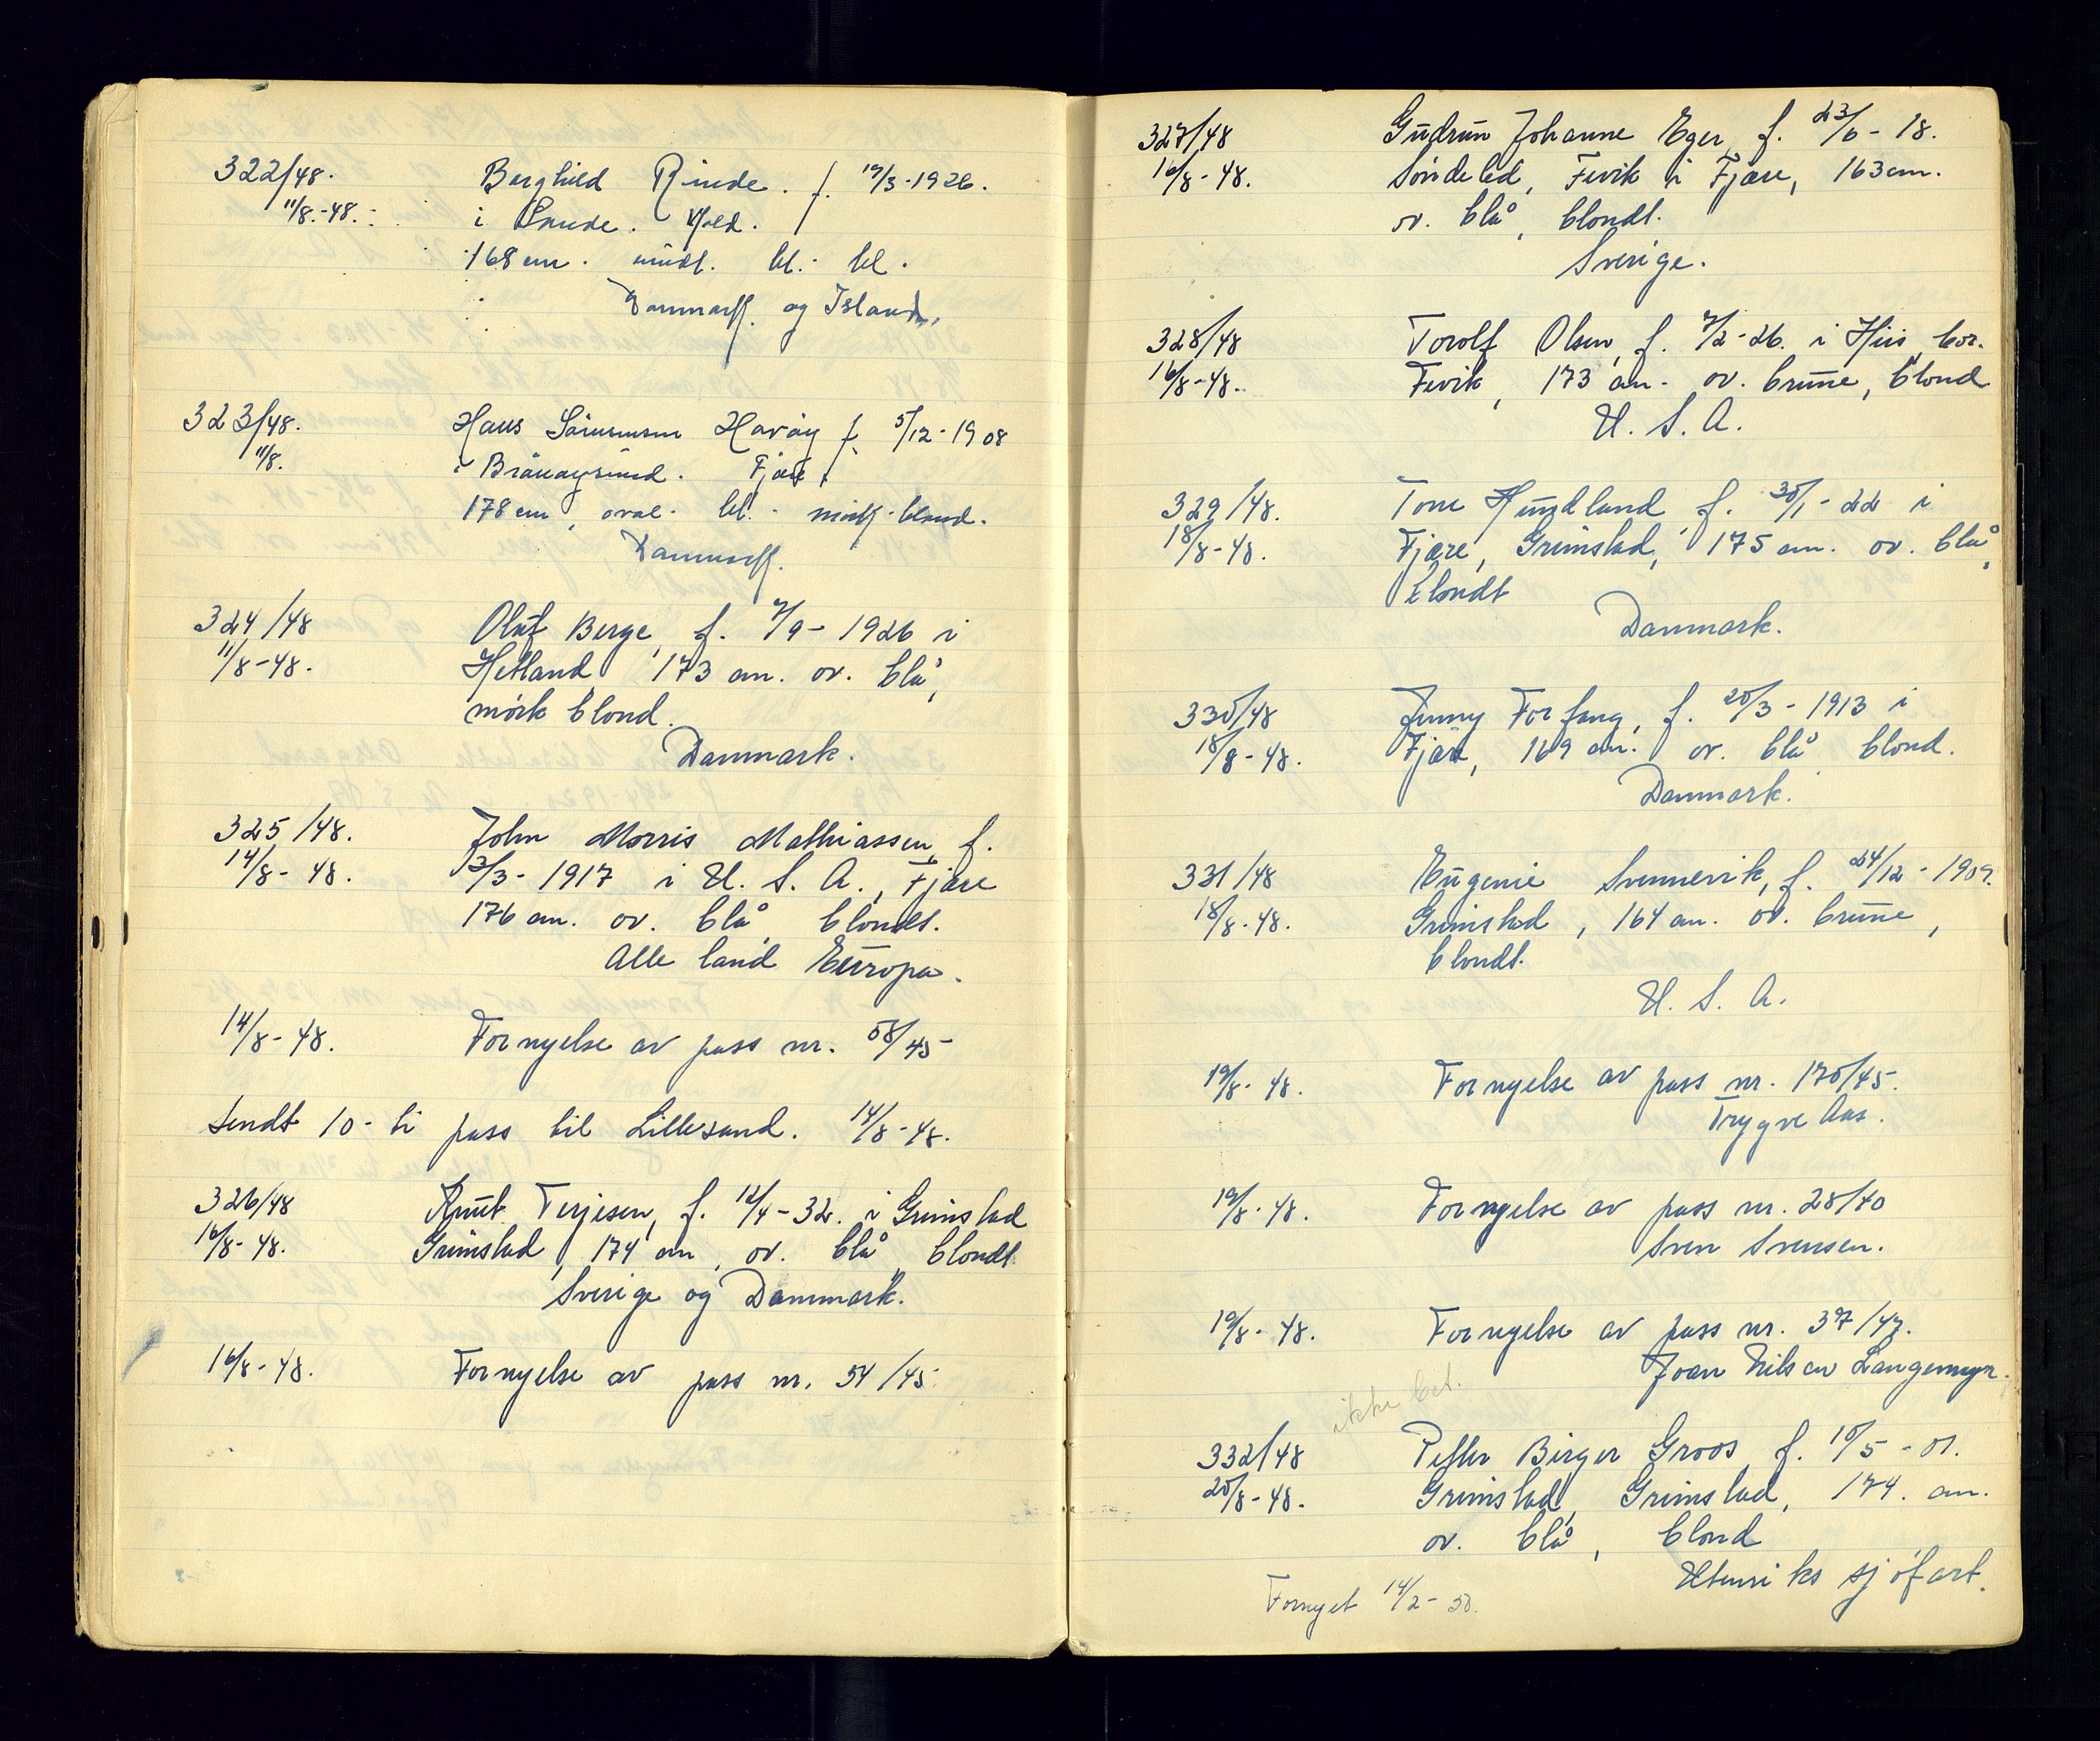 322/48.
11/8.-48.
Borghild Rinde. f. 19/3-1926.
i Lunde.
168 cm. rundt. bl. bl.
Danmark og Island.
323/48.
11/8.
Hans Sørensen Havåg f. 5/12-1908
i Brønnøysund. Fjære.
178 cm, oval. bl. mørk blond.
Danmark.
324/48
11/8-48.
Oluf Berge, f. 7/9-1926 i
Hetland 173 cm. ov. blå,
mørk blond.
Danmark.
325/48.
14/8-48.
John Morris Mathiassen, f.
3/3-1917 i U.S.A., Fjære
176 cm. ov. blå, blondt.
Alle land Europa.
14/8-48.
Fornyelse av pass nr. 58/45
Sendt 10-ti pass til Lillesand. 14/8-48.
326/48
16/8-48.
Knut Terjesen, f. 12/4-32. i Grimstad
Grimstad, 174 cm, ov. blå, blondt
Sverige og Danmark.
16/8-48.
Fornyelse av pass nr. 54/45.
327/48
16/8-48.
Gudrun Johanne Eger, f. 23/6-18.
Søndeled, Fevik i Fjære, 163 cm.
ov. blå, blondt.
Sverige.
328/48
16/8-48.
Torolf Olsen, f. 7/2-26. i Hiis, bor.
Fevik, 173 cm. ov. brune, blond
U.S.A.
329/48.
18/8-48.
Tore Hundland f. 30/1-22 i
Fjære, Grimstad, 175 cm. ov. blå,
blondt
Danmark.
330/48
18/8-48.
Jenny Forfang, f. 20/3-1913 i
Fjære, 169 cm. ov. blå, blond.
Danmark.
331/48
18/8-48.
Eugenie Svennevik, f. 24/12-1909.
Grimstad, 164 cm. ov. brune,
blondt.
U.S.A.
19/8-48.
Fornyelse av pass nr. 170/45.
Trygve Aas.
19/8-48.
Fornyelse av pass nr. 28/40
Sven Svensen.
19/8-48.
Fornyelse av pass nr. 37/47.
Joan Nilsen Langemyr.
ikke bet.
332/48
20/8-48.
Petter Birger Groos, f. 10/5-01.
Grimstad, Grimstad, 174. cm.
ov. blå, blond
Utenriks sjøfart.
Fornyet 14/2-50.